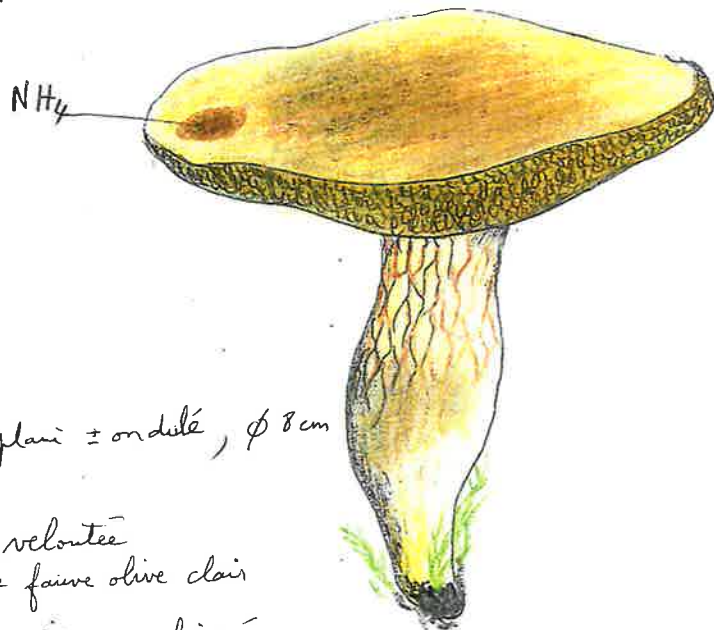 NH4
plani ± ondulé, φ 8 cm
veloutée
± fauve olive clair